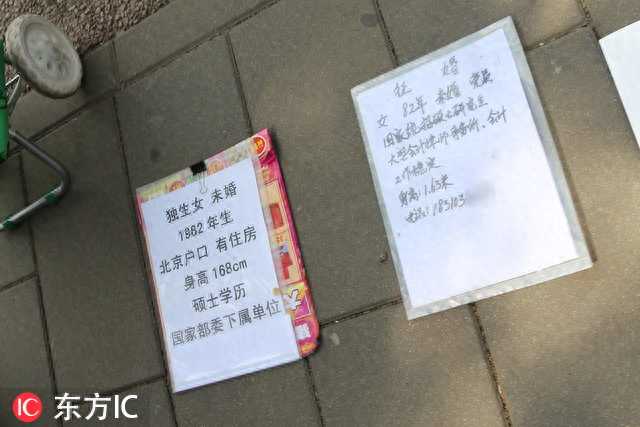 独生女 未婚
1982年生
北京户口 有住房
身高168cm
硕士学历
国家部委下属单位
征 婚
女 82年 未婚 党员
国家统招硕士研究生
大型会计师事务所、会计
工作稳定
身高:1.63米
电话:183103
东方IC
IC